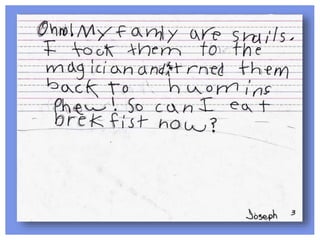 Oh no! My famly are snails.
I tock them to the
magician and it trned them
back to huomins
phew! So can I eat
brekfist now?
Joseph 3